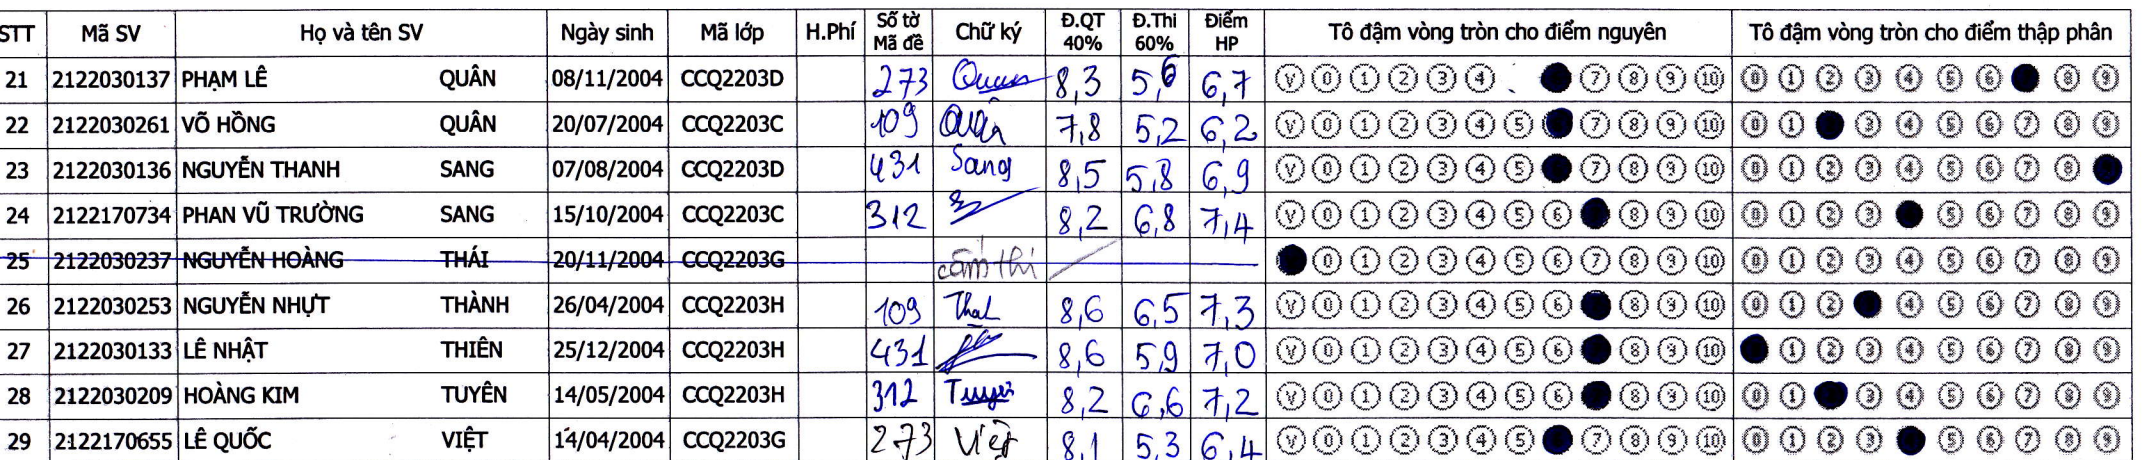 STT Mã SV Họ và tên SV Ngày sinh Mã lớp H.Phí Số tờ Mã đề Chữ ký Đ.QT 40% Đ.Thi 60% Điểm HP Tô đậm vòng tròn cho điểm nguyên Tô đậm vòng tròn cho điểm thập phân
21 2122030137 PHẠM LÊ QUÂN 08/11/2004 CCQ2203D 273 Quân 8,3 5,6 6,7 V 0 1 2 3 4 7 8 9 10 0 1 2 3 4 5 6 8 9
22 2122030261 VÕ HỒNG QUÂN 20/07/2004 CCQ2203C 109 Quân 7,8 5,2 6,2 V 0 1 2 3 4 5 7 8 9 10 0 1 3 4 5 6 7 8 9
23 2122030136 NGUYỄN THANH SANG 07/08/2004 CCQ2203D 431 Sang 8,5 5,8 6,9 V 0 1 2 3 4 5 7 8 9 10 0 1 2 3 4 5 6 7 8
24 2122170734 PHAN VŨ TRƯỜNG SANG 15/10/2004 CCQ2203C 312 8,2 6,8 7,4 V 0 1 2 3 4 5 6 8 9 10 0 1 2 3 5 6 7 8 9
25 2122030237 NGUYỄN HOÀNG THÁI 20/11/2004 CCQ2203G cấm thi 0 1 2 3 4 5 6 7 8 9 10 0 1 2 3 4 5 6 7 8 9
26 2122030253 NGUYỄN NHỰT THÀNH 26/04/2004 CCQ2203H 109 8,6 6,5 7,3 V 0 1 2 3 4 5 6 8 9 10 0 1 2 4 5 6 7 8 9
27 2122030133 LÊ NHẬT THIÊN 25/12/2004 CCQ2203H 431 8,6 5,9 7,0 V 0 1 2 3 4 5 6 8 9 10 1 2 3 4 5 6 7 8 9
28 2122030209 HOÀNG KIM TUYÊN 14/05/2004 CCQ2203H 312 Tuyên 8,2 6,6 7,2 V 0 1 2 3 4 5 6 8 9 10 0 1 3 4 5 6 7 8 9
29 2122170655 LÊ QUỐC VIỆT 14/04/2004 CCQ2203G 273 Việt 8,1 5,3 6,4 V 0 1 2 3 4 5 7 8 9 10 0 1 2 3 5 6 7 8 9